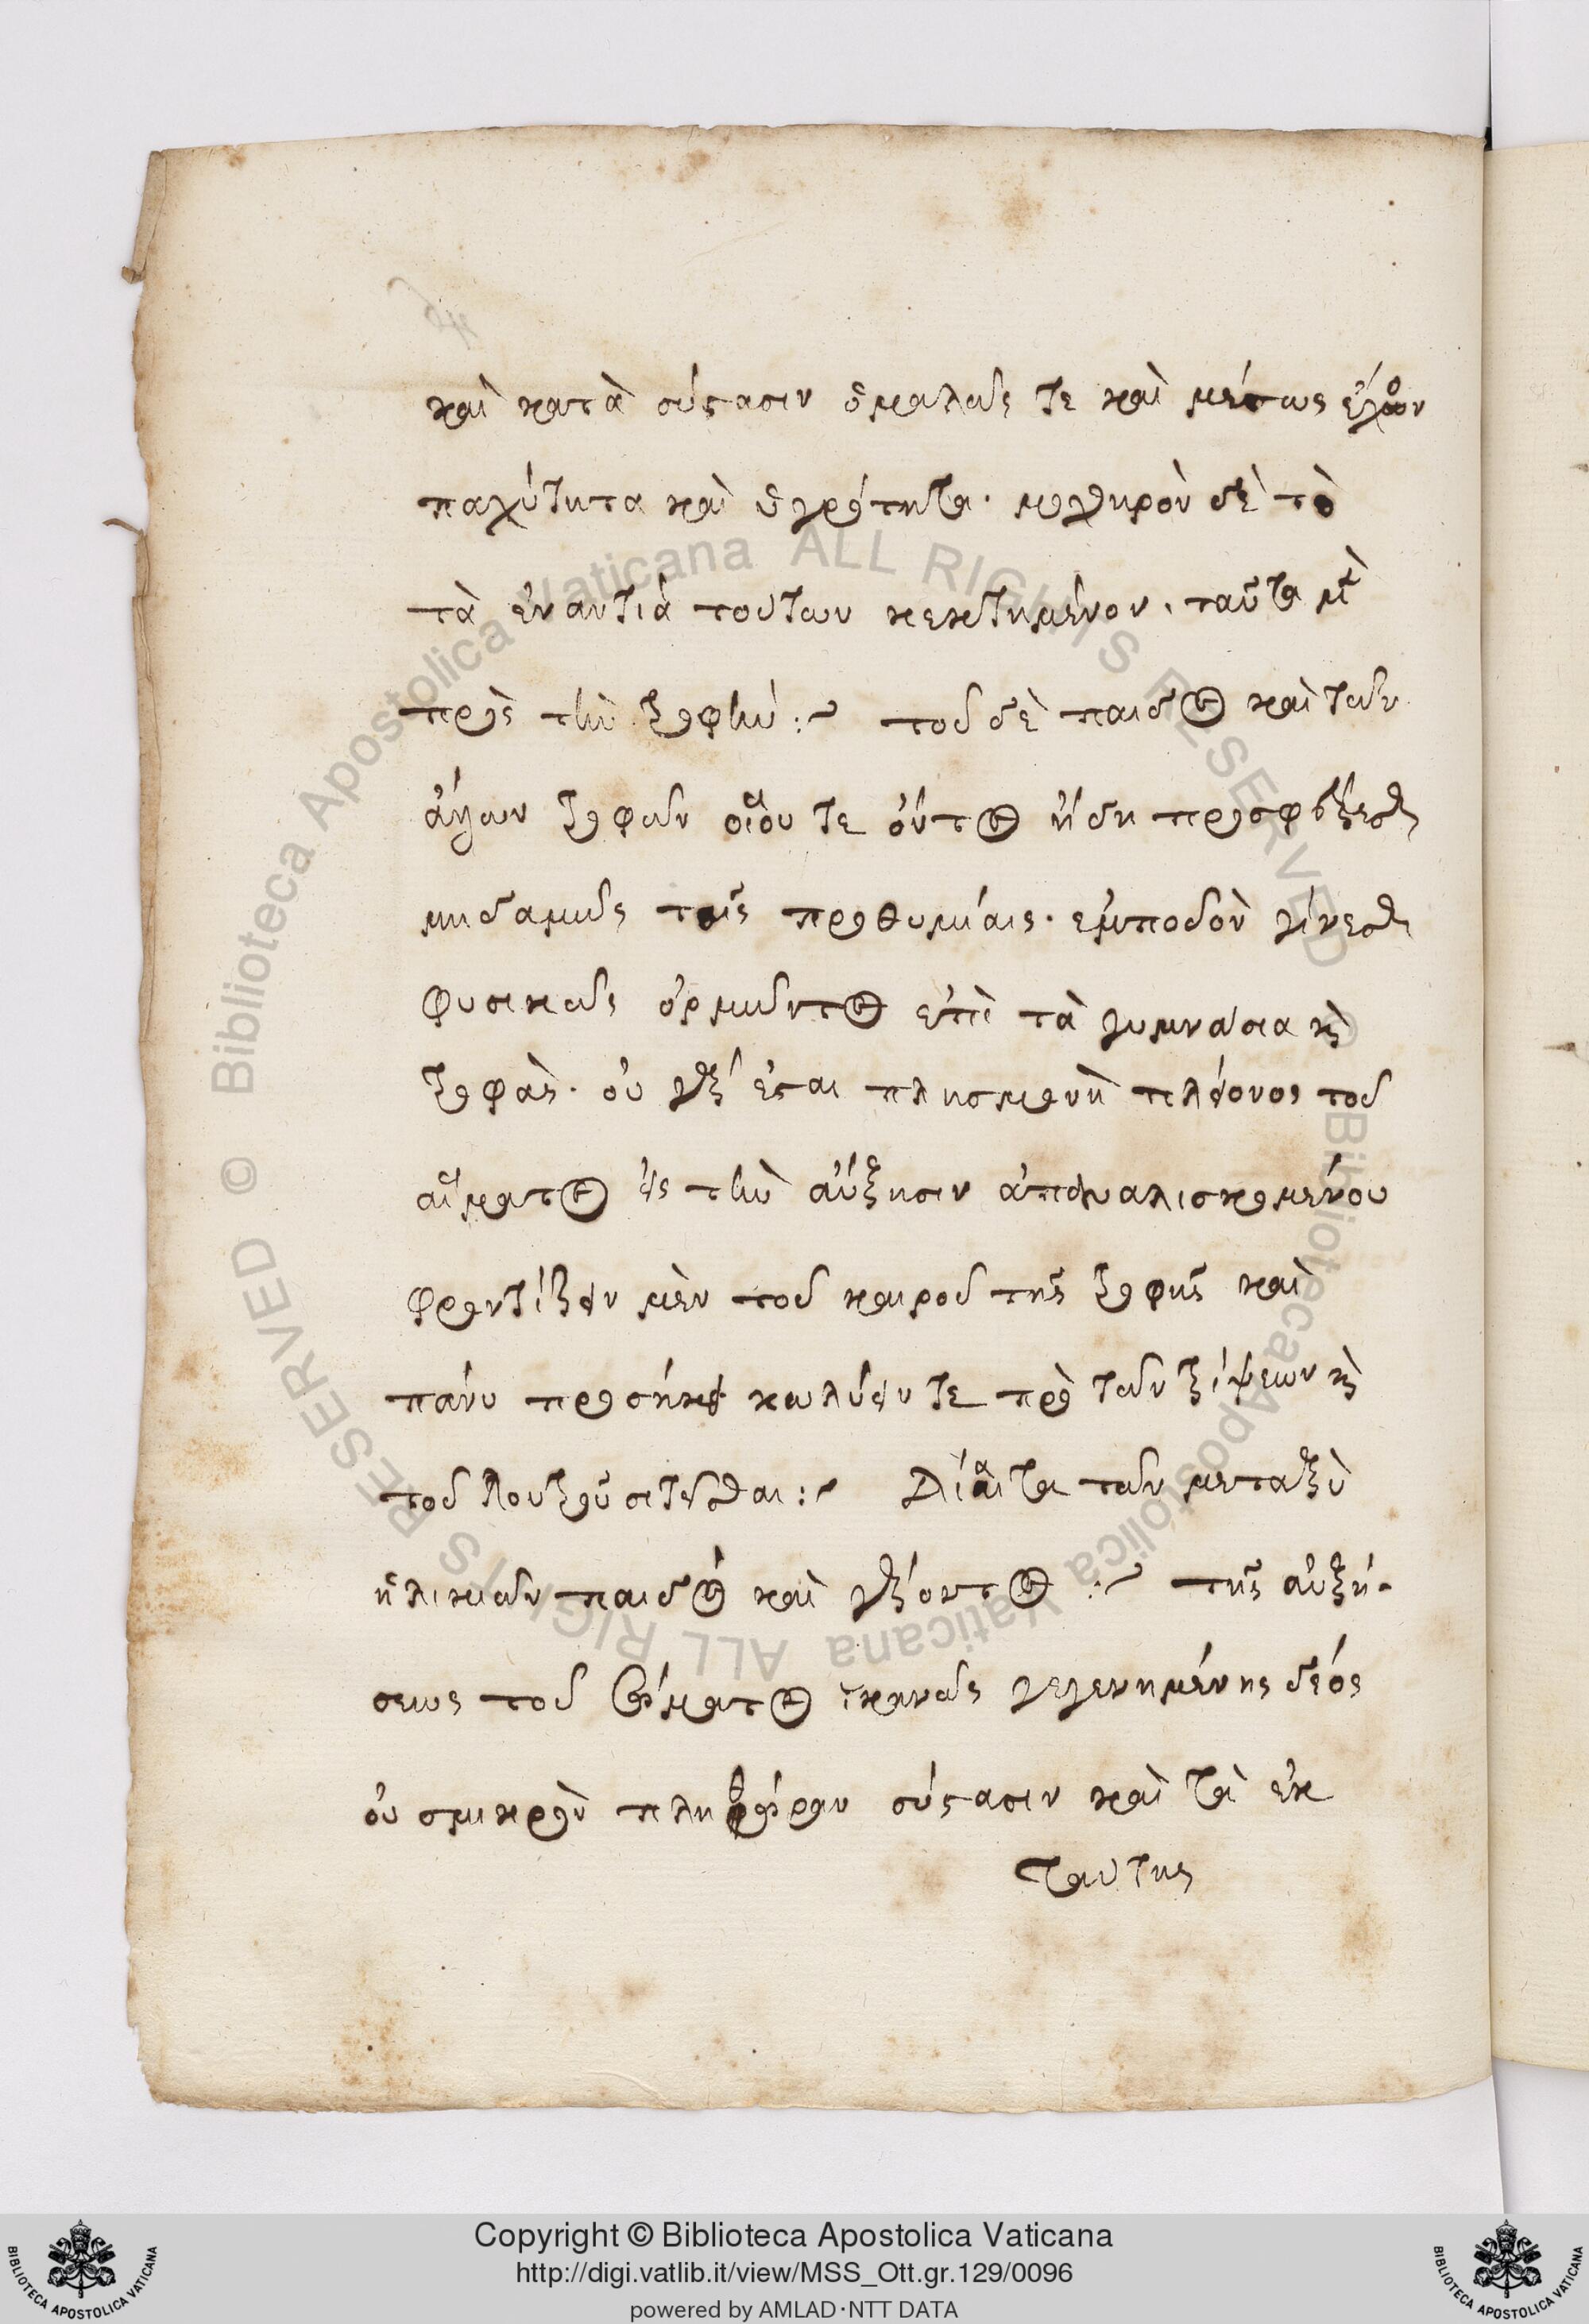 καὶ κατὰ σύστασιν ὁμαλῶς τε καὶ μέσως ἔχον
παχύτητα καὶ ὑγρότητα· μοχθηρὸν δὲ τὸ
τὰ ἐναντία τούτων κεκτημένον, ταῦτα μὲν
πρὸς τὴν τροφήν :~ τοῦ δὲ παιδὸς καὶ τῶν
ἄλλων τροφῶν οἵου τε ὄντος ἤδη προσφέρεσθαι
μηδαμῶς ταῖς προθυμίαις· ἐμποδὸν γίνεσθαι
φυσικῶς ὁρμῶντος ἐπὶ τὰ γυμνάσια καὶ
τροφὰς· οὐ γὰρ ἔσται πλησμονὴ πλείονος τοῦ
αἵματος εἰς τὴν αὔξησιν ἀπαναλισκομένου
φροντίζειν μὲν τοῦ καιροῦ τῆς τροφῆς καὶ
πάνυ προσήκει κωλύειν τε πρὸ τῶν τρίψεων καὶ
τοῦ λουτροῦ σιτεῖσθαι :~ Δίαιτα τῶν μεταξὺ
ἡλικιῶν παιδὸς καὶ γέροντος :~ τῆς αὐξή-
σεως τοῦ σώματος ἱκανῶς γεγενημένης δέος
οὐ σμικρὸν πληθώραν σύστασιν καὶ τὰ ἐκ
ταύτης
© Biblioteca Apostolica Vaticana ALL RIGHTS RESERVED
© Biblioteca Apostolica Vaticana ALL RIGHTS RESERVED
Copyright © Biblioteca Apostolica Vaticana
http://digi.vatlib.it/view/MSS_Ott.gr.129/0096
powered by AMLAD·NTT DATA
BIBLIOTECA APOSTOLICA VATICANA
BIBLIOTECA APOSTOLICA VATICANA